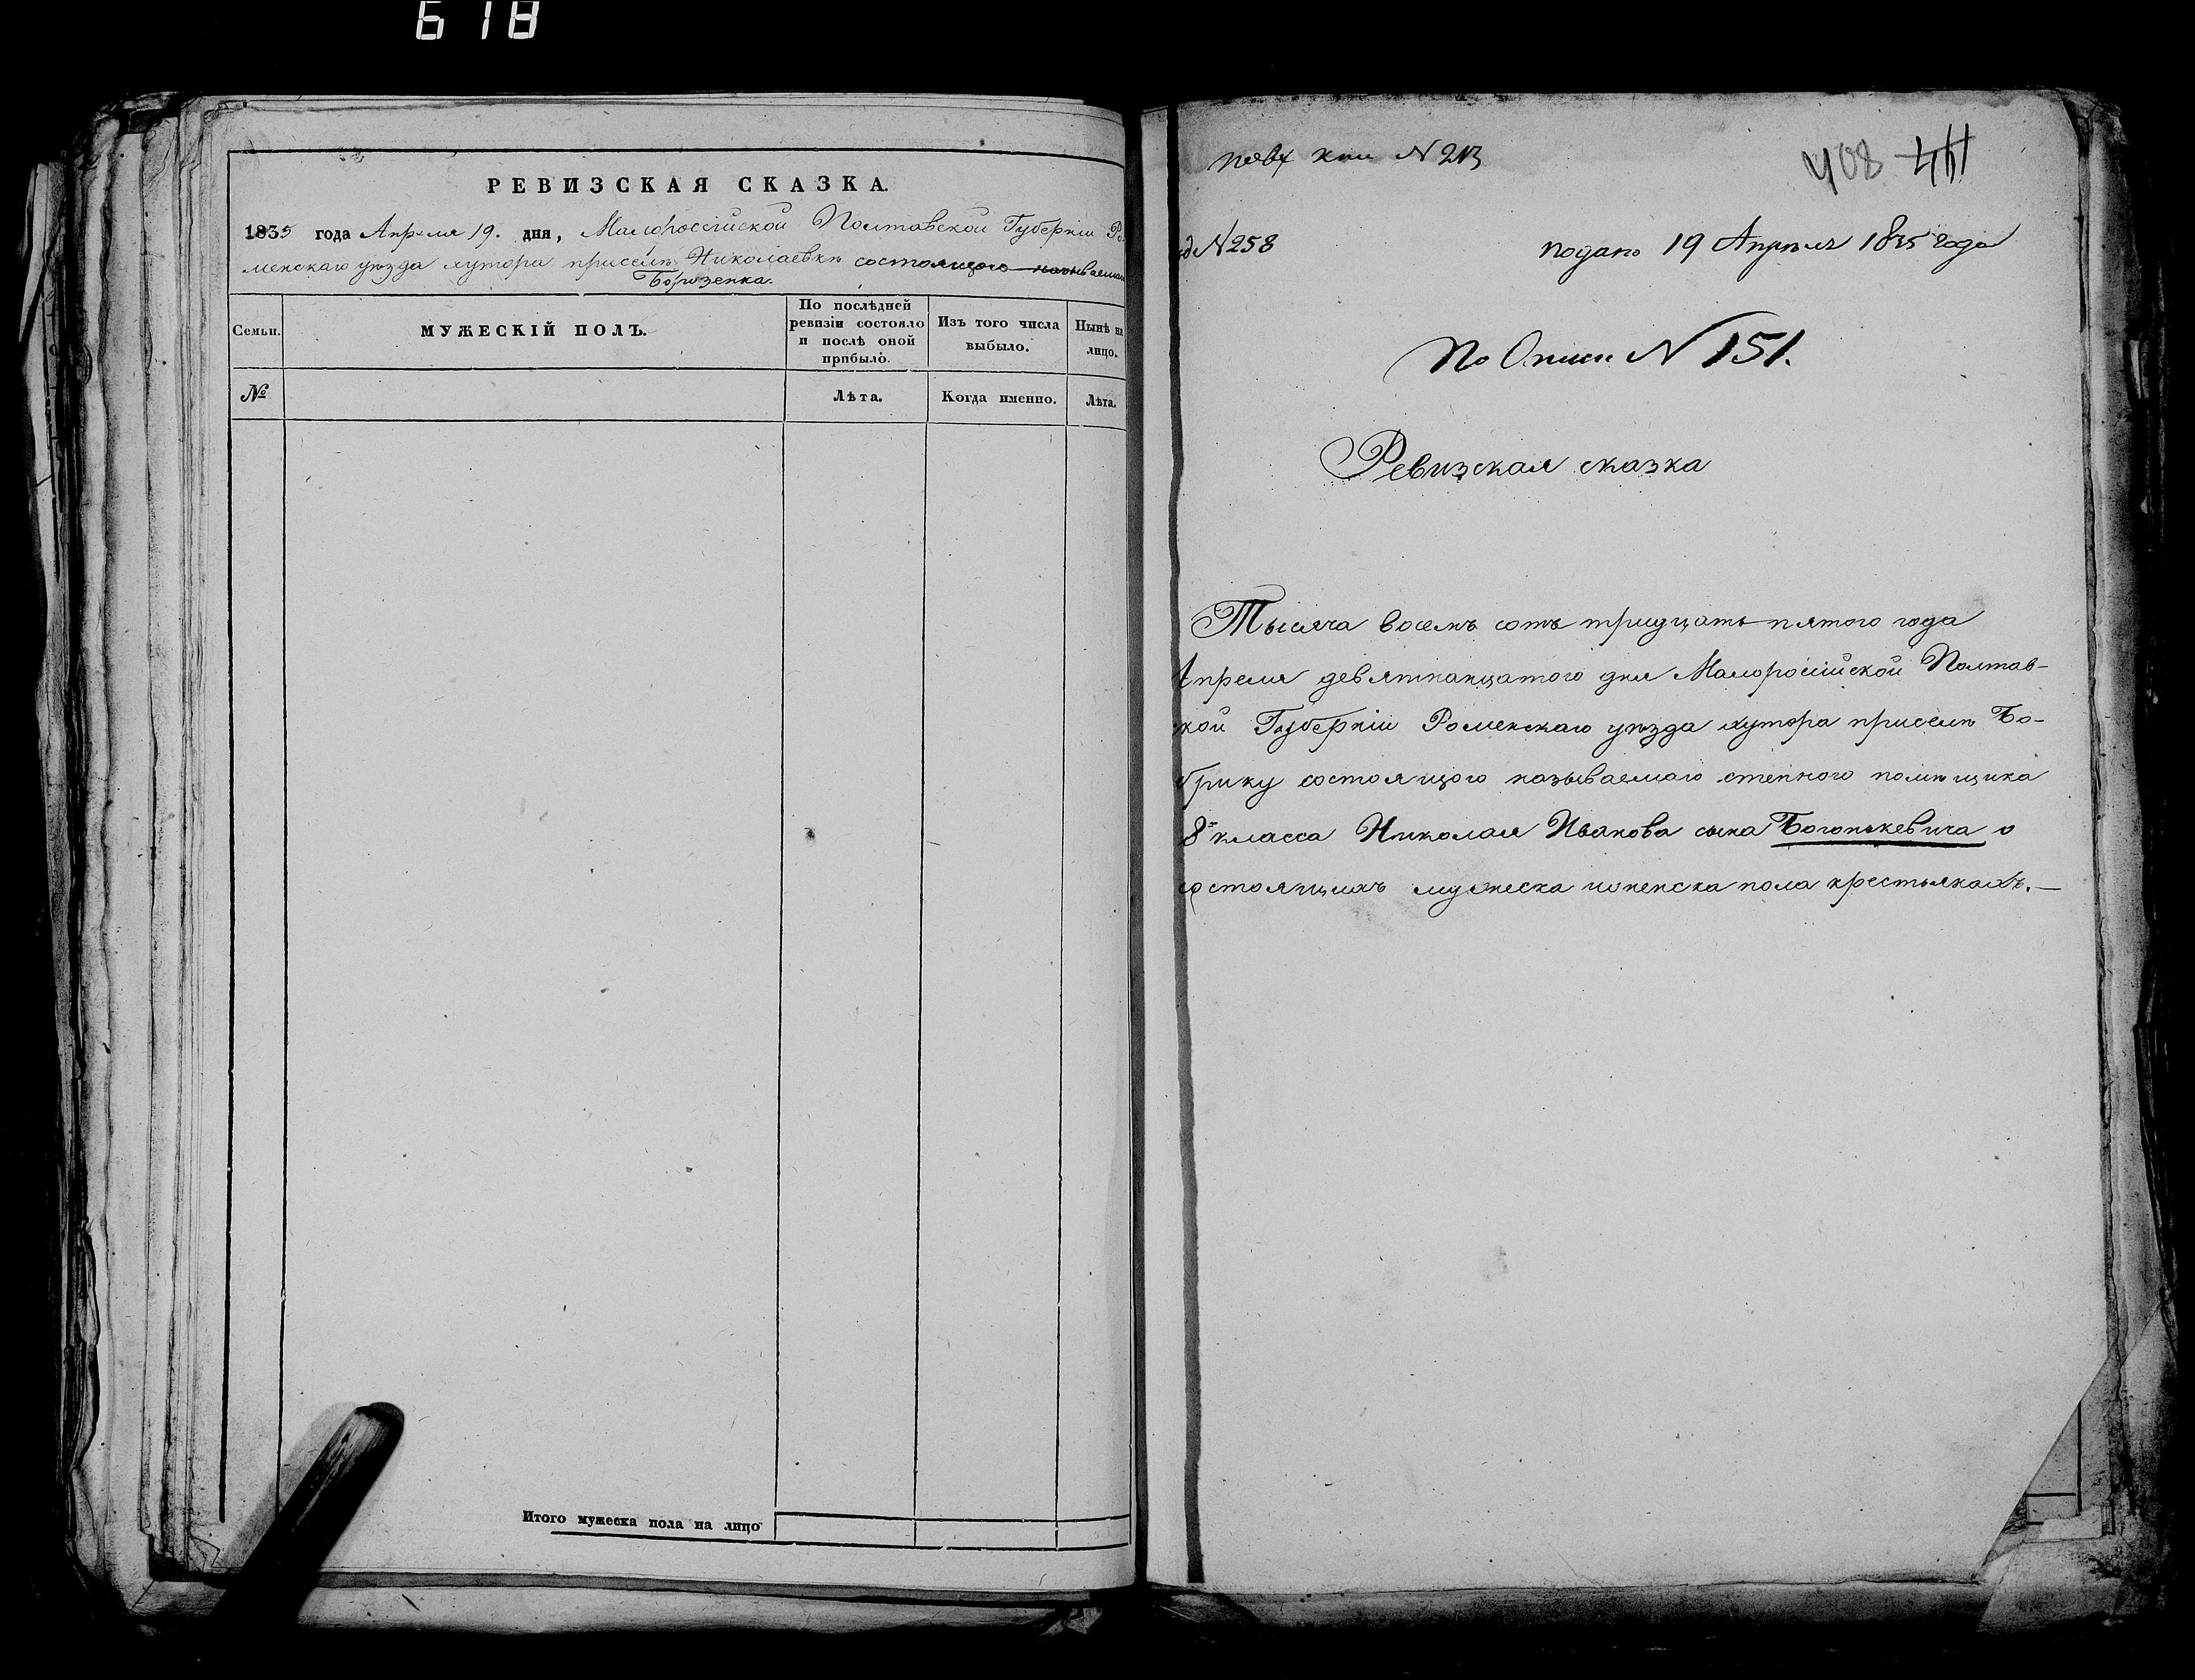 618
РЕВИЗСКАЯ СКАЗКА.
1835 года Апреля 19. дня, Малороссійской Полтавской Губерніи Ро
менскаго уѣзда хутораприселѣ Николаевкѣ состоящого называемаго
Борозенка.
Семьи. МУЖЕСКІЙ ПОЛЪ. По послѣдней ревизіи состояло и послѣ оной прибыло. Изъ того числа выбыло. Нынѣ на лицо.
№ Лѣта. Когда именно. Лѣта.
Итого мужеска пола на лицо
N 213
408 411
N 258
подано 19 Апрѣля 1835 года
По Описи N 151.
Ревизская сказка
Тысяча восемъ сотъ тридцать пятого года
Апреля девятнанцатого дня Малоросійской Полтав-
ской Губерніи Роменскаго уѣзда хутора приселѣ Бо-
брику состоящого называемаго степного помѣщика
8го класса Николая Иванова сына Богонькевича о
состоящихъ мужеска иженска пола крестьянахъ.—